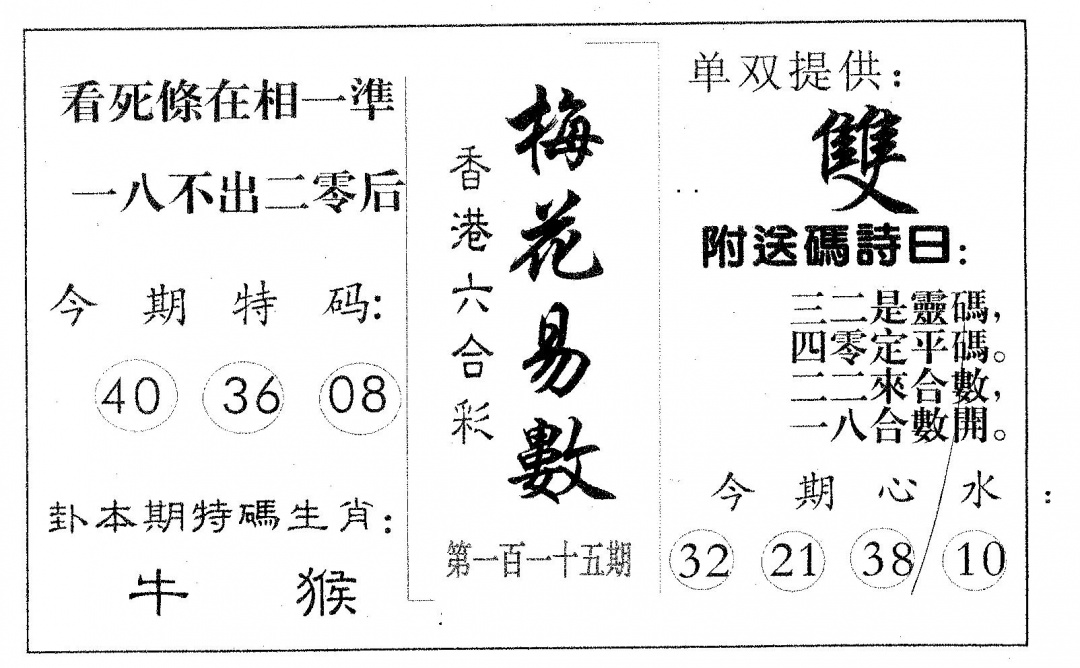 看死條在相一準
一八不出二零后
今期特码:
40 36 08
卦本期特碼生肖:
牛 猴
香港六合彩
梅花易數
第一百一十五期
单双提供:
雙
附送碼詩日:
三二是靈碼,
四零定平碼。
二二來合數,
一八合數開。
今期心水:
32 21 38 10